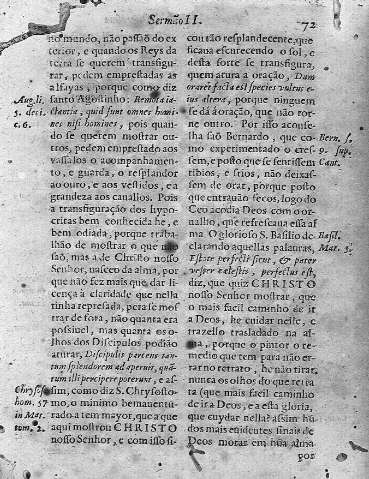 Sermão II.
72
no mundo, não passão do ex
terior, e quando os Reys da
terra se querem transfigu-
rar, pedem emprestadas as
alfayas, porque como diz
santo Agostinho: Remota ia-
ctantia, quid sunt omnes homi-
nes nisi homines, pois quan-
do se querem mostrar ou-
tros, pedem emprestado aos
vassalos o acompanhamento
, e guarda, o resplandor
ao ouro, e aos vestidos, e a
grandeza aos cauallos. Pois
a transfiguração dos hypo-
critas bem conhecida he, e
bem odiada, porque traba-
lhão de mostrar o que não
saõ, mas a de Christo nosso
Senhor, nasceo da alma, por
que não fez mais que dar li-
cença à claridade que nella
tinha represada, pera se mos
trar de fora, não quanta era
possiuel, mas quanta os o-
lhos dos Discipulos podião
aturar, Discipulis parcens tan-
tum splendorem ad aperuit, quan-
tum illi percipere poterunt, e as-
sim, como diz S. Chrysosto-
mo, o minimo bemauentu-
rado a tem mayor, que a que
aqui mostrou CHRISTO
nosso Senhor, e com isso fi-
Aug. li.
5. deci.
c. 6.
Chrysost.
hom. 57
in Mat.
tom. 2.
cou tão resplandecente, que
ficaua escurecendo o sol, e
desta sorte se transfigura,
quem atura a oração, Dum
oraret facta est species vultus e-
ius altera, porque ninguem
se dá à oração, que não tor-
ne outro. Por isso aconse-
lha saõ Bernardo, que co-
mo experimentado o cres-
sem, e posto que se sentissem
tibios, e frios, não deixas-
sem de orar, porque posto
que entrauão secos, logo do
Ceo acodia Deos com o or-
ualho, que refrescaua essa al
ma. O glorioso S. Basilio de
clarando aquellas palauras,
Estote perfecti sicut, & pater
vester cælestis, perfectus est,
diz, que quiz CHRISTO
nosso Senhor mostrar, que
o mais facil caminho de ir
a Deos, he cuidar nelle, e
trazello trasladado na al-
ma, porque o pintor o re-
medio que tem para não er-
rar no retrato, he não tirar
nunca os olhos do que retra
ta (que mais facil caminho
de ir a Deos, e a esta gloria,
que cuydar nella? assim hũ
dos mais euidentes sinais de
Deos morar em hũa alma
Bern. s.
9. sup.
Cant.
Basil.
Mat. 5.
por